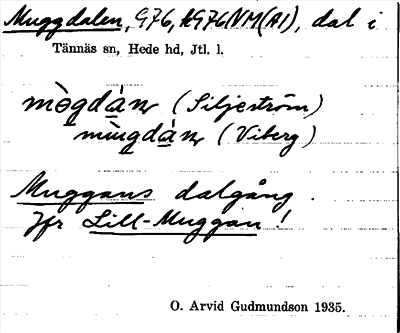 Muggdalen, G76, kG76NVM(A1), dal i
Tännäs sn, Hede hd, Jtl. l.
mògdánͅ (Siljeström)
mùgdánͅ (Viberg)
Muggans dalgång.
Jfr Lill-Muggan!
O. Arvid Gudmundson 1935.